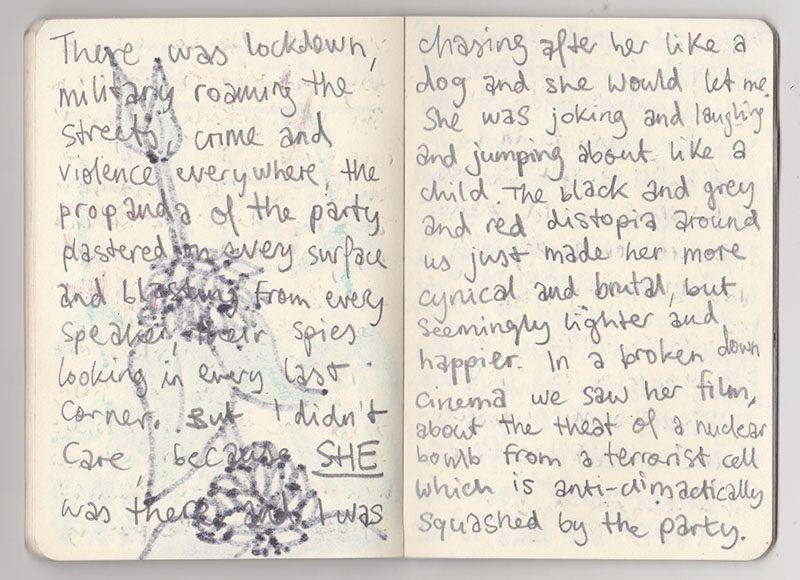 There was lockdown,
military roaming the
streets, crime and
violence everywhere, the
propanda of the party
plastered on every surface
and blasting from every
speaker, their spies
looking in every last
corner. But I didn't
care, because SHE
was there, and I was
chasing after her like a
dog and she would let me.
She was joking and laughing
and jumping about like a
child. The black and grey
and red distopia around
us just made her more
cynical and brutal, but
seemingly lighter and
happier. In a broken down
cinema we saw her film,
about the theat of a nuclear
bomb from a terrorist cell
which is anti-climactically
squashed by the party.